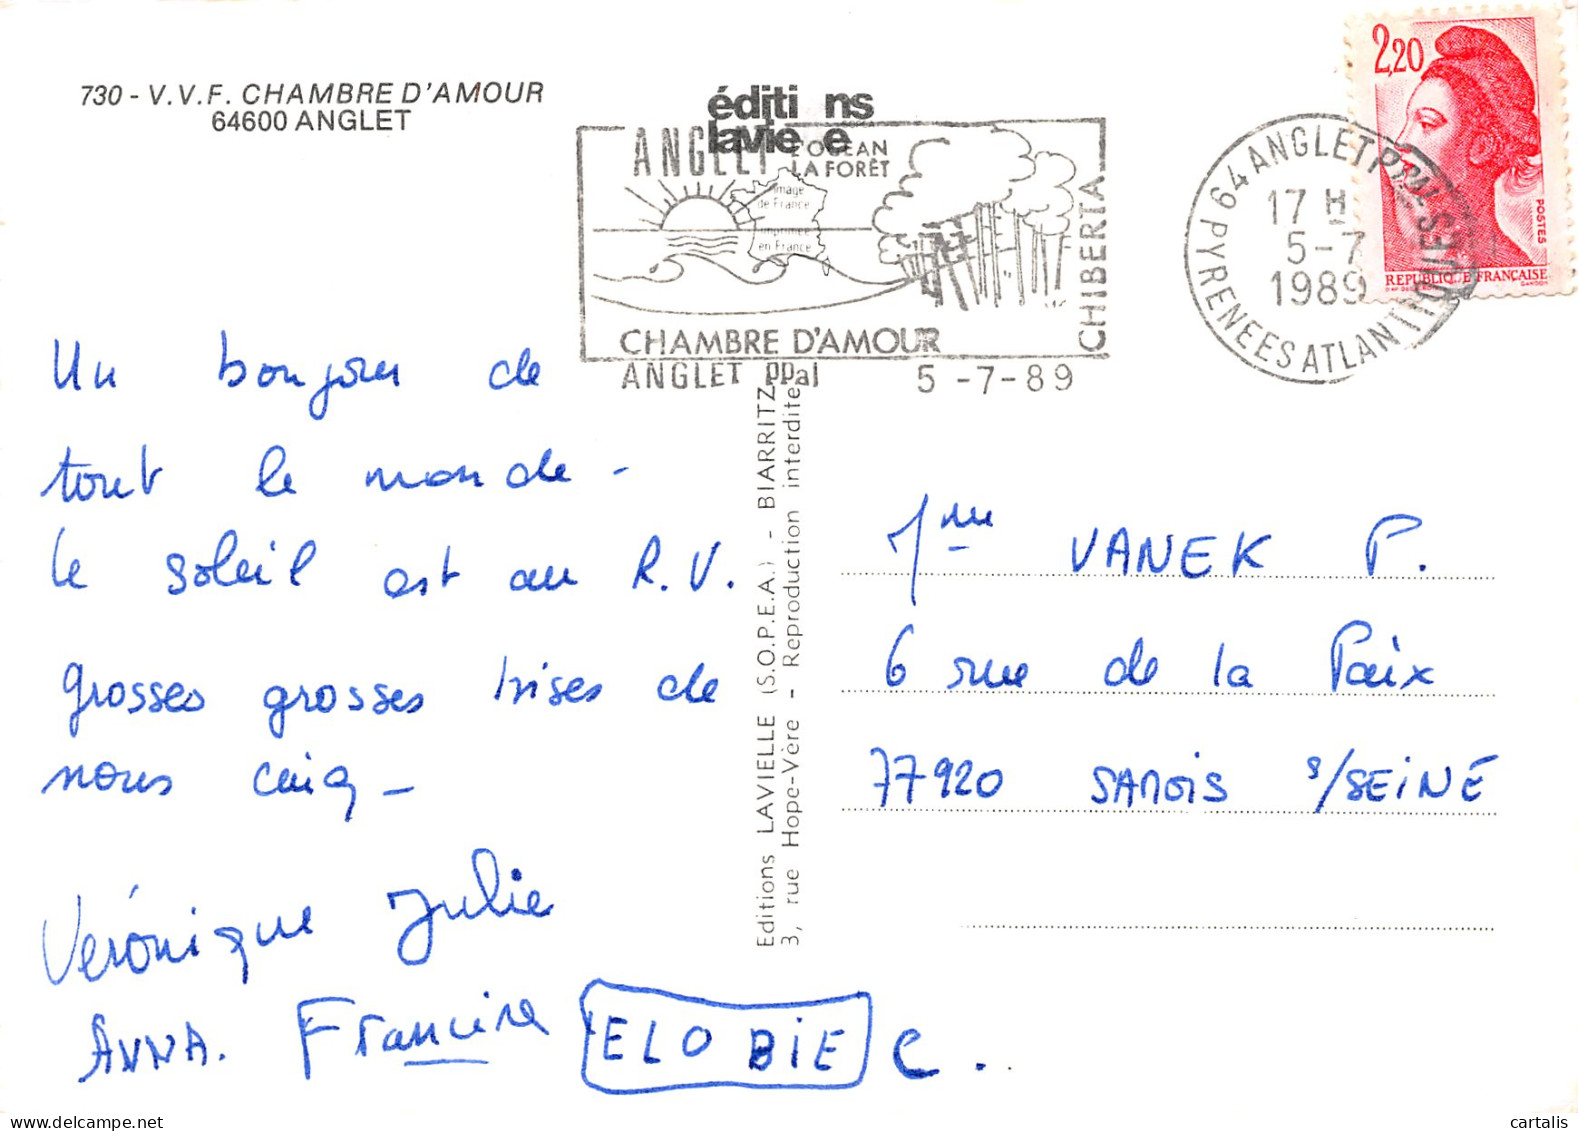 730 - V.V.F. CHAMBRE D'AMOUR
64600 ANGLET
éditi ns
lavie e
ANGLET L'OCEAN
LA FORÊT
image
de France
imprimée
en France
CHIBERTA
CHAMBRE D'AMOUR
ANGLET PPal 5-7-89
64 ANGLET PPAL
17 H
5-7
1989
PYRENEES ATLANTIQUES
2,20
POSTES
REPUBLIQUE FRANÇAISE
GANDON
Un bonjour de
tout le monde -
le soleil est au R.V.
grosses grosses bises de
nous cinq -
Véronique Julie
ANNA. Francine ELOBIE C.
Editions LAVIELLE (S.O.P.E.A.) - BIARRITZ
3, rue Hope-Vère - Reproduction interdite
Mme VANEK P.
6 rue de la Paix
77920 SAMOIS s/SEINE
cartalis